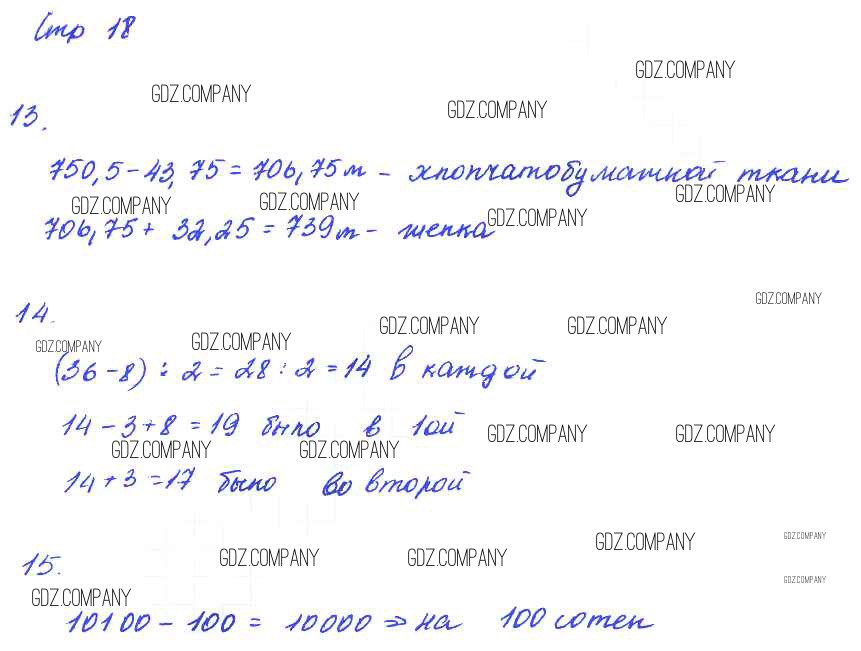 Стр 18
GDZ.COMPANY
GDZ.COMPANY
GDZ.COMPANY
13.
750,5 - 43,75 = 706,75 м - хлопчатобумажной ткани
GDZ.COMPANY
GDZ.COMPANY
GDZ.COMPANY
GDZ.COMPANY
706,75 + 32,25 = 739 м - шелка
GDZ.COMPANY
14.
GDZ.COMPANY
GDZ.COMPANY
GDZ.COMPANY
GDZ.COMPANY
(36 - 8) : 2 = 28 : 2 = 14 в каждой
14 - 3 + 8 = 19 было в 1ой
GDZ.COMPANY
GDZ.COMPANY
GDZ.COMPANY
GDZ.COMPANY
14 + 3 = 17 было во второй
GDZ.COMPANY
GDZ.COMPANY
15.
GDZ.COMPANY
GDZ.COMPANY
GDZ.COMPANY
GDZ.COMPANY
10100 - 100 = 10000 => на 100 сотен